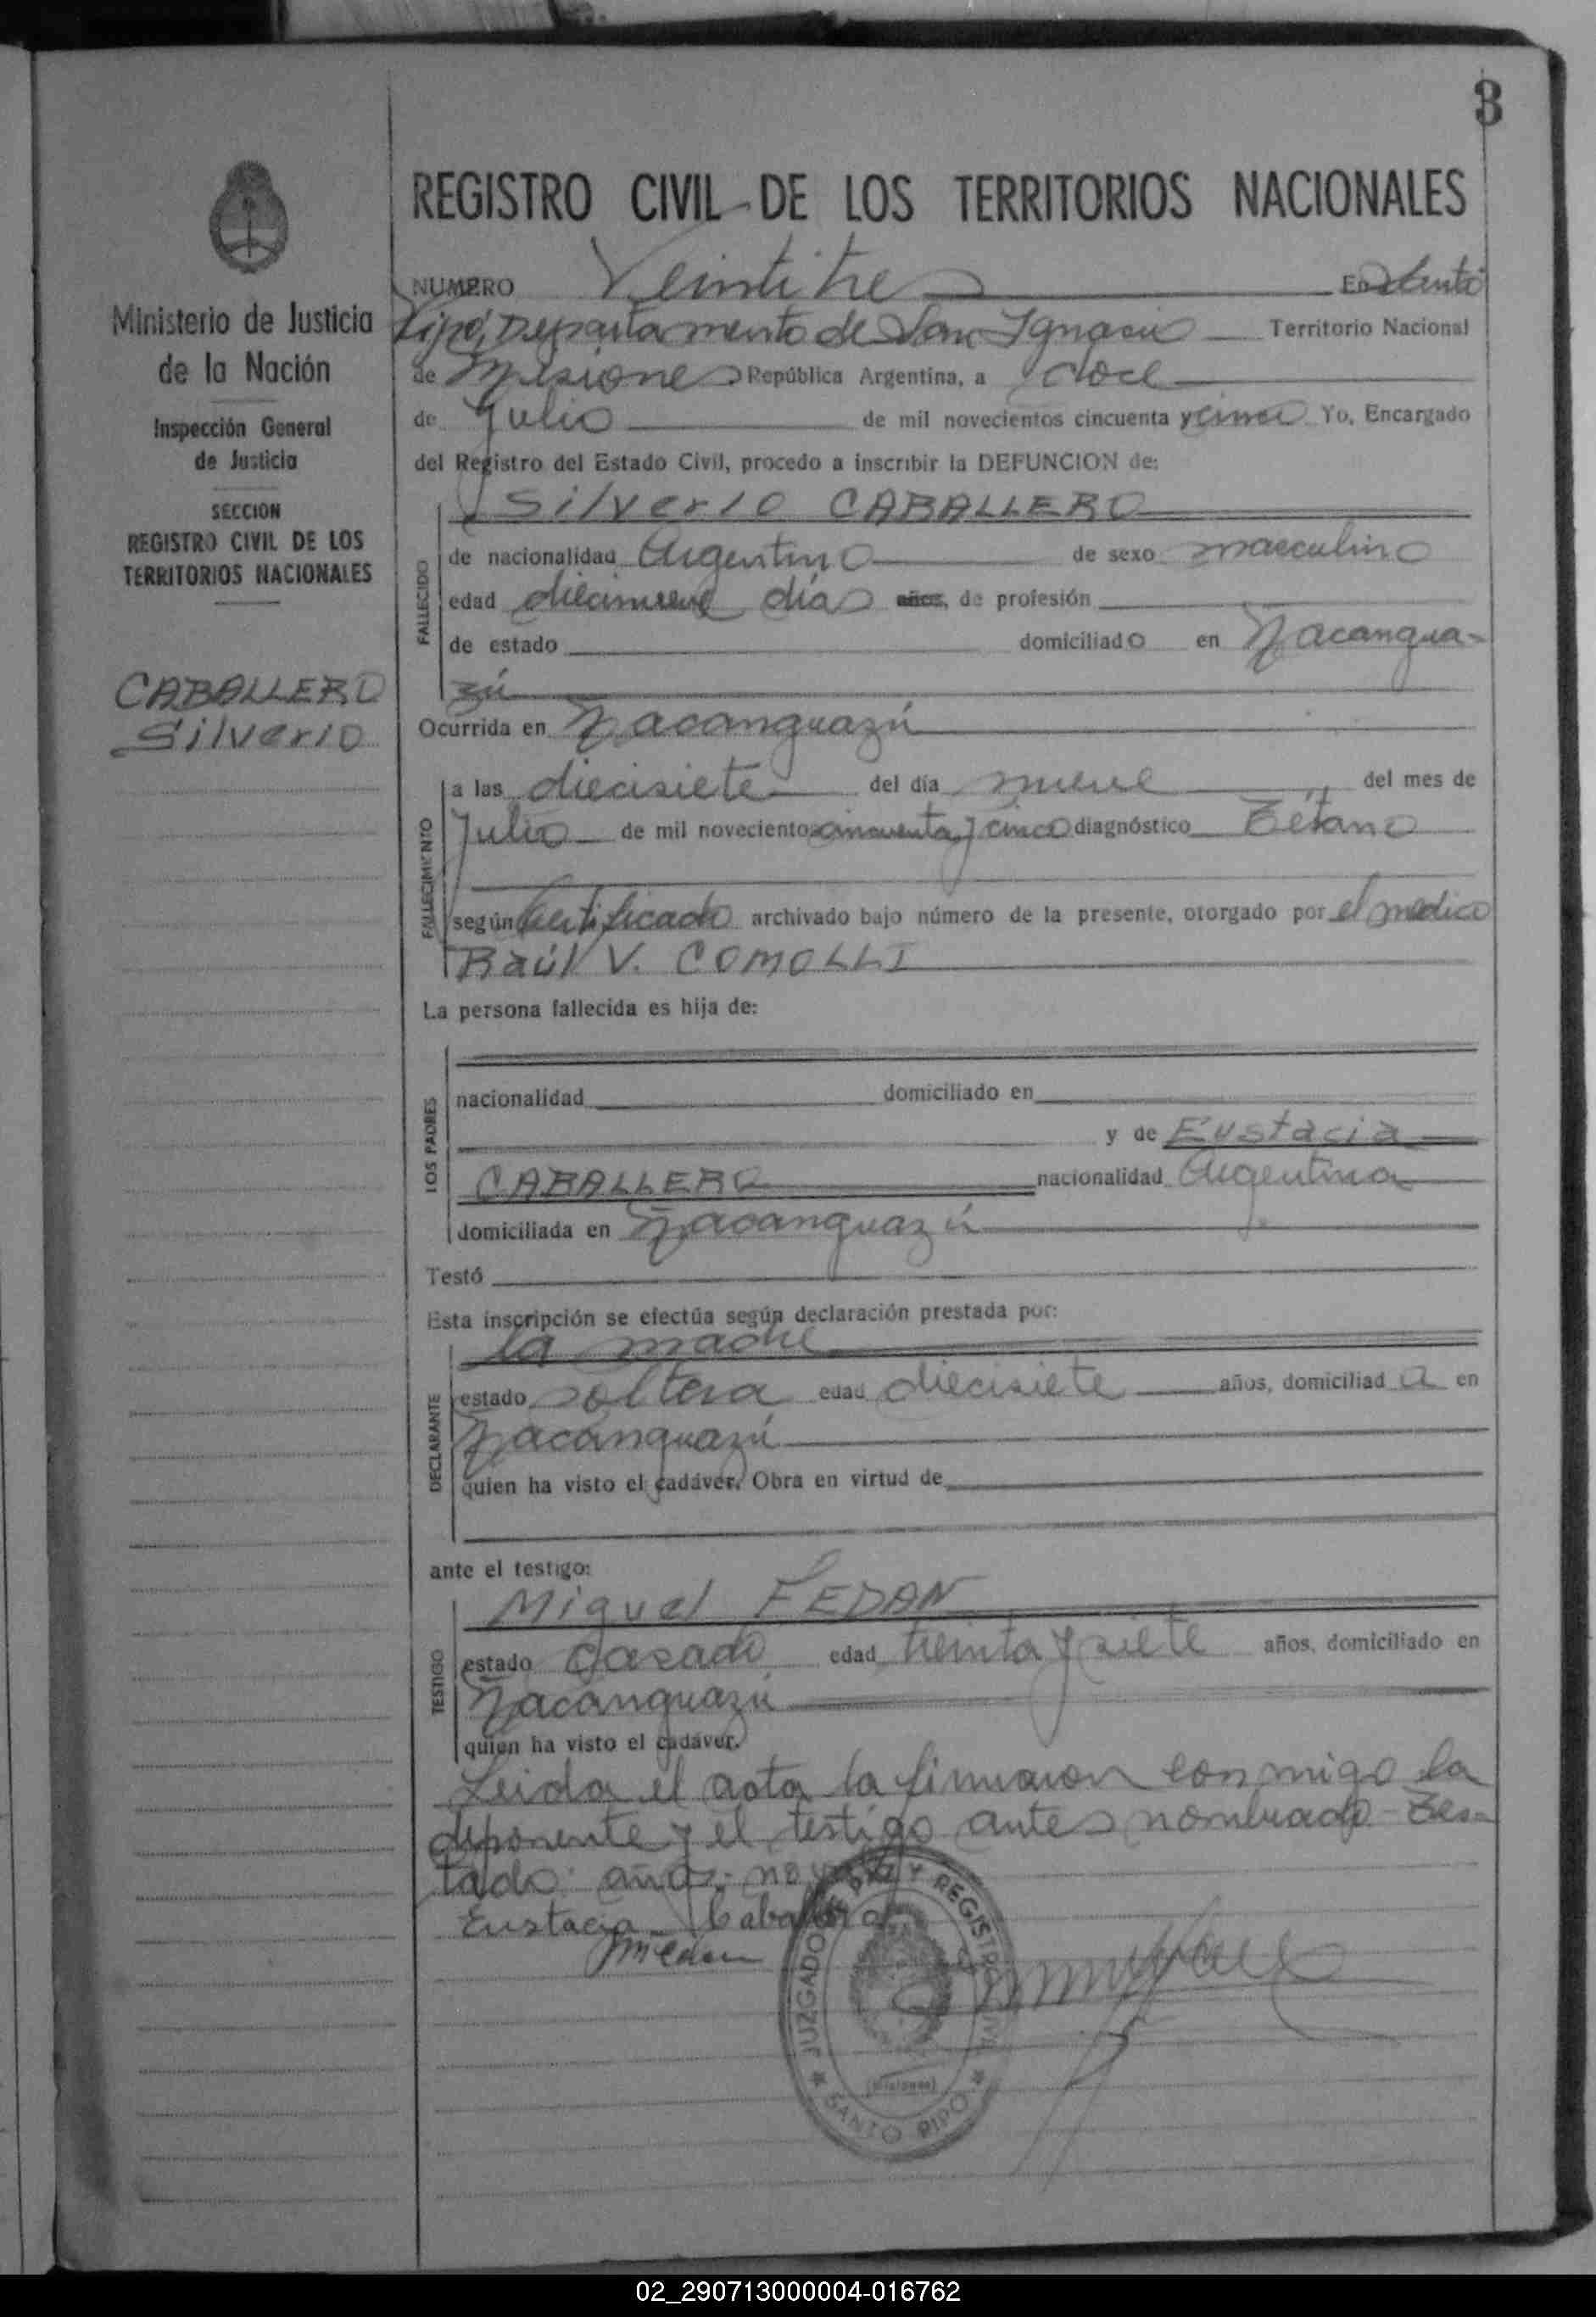 3
REGISTRO CIVIL DE LOS TERRITORIOS NACIONALES
Ministerio de Justicia
de la Nación
Inspección General
de Justicia
SECCION
REGISTRO CIVIL DE LOS
TERRITORIOS NACIONALES
CABALLERO
Silverio
NUMERO Veintitres En Santo
Pipó, Departamento de San Ignacio Territorio Nacional
de Misiones República Argentina, a doce
de Julio de mil novecientos cincuenta y cinco Yo, Encargado
del Registro del Estado Civil, procedo a inscribir la DEFUNCION de:
Silverio CABALLERO
FALLECIDO
de nacionalidad Argentino de sexo masculino
edad diecinueve días años, de profesión
de estado domiciliado en Ñacangua-
zú
Ocurrida en Ñacanguazú
FALLECIMIENTO
a las diecisiete del día nueve del mes de
Julio de mil novecientos cincuenta y cinco diagnóstico Tétano
según Certificado archivado bajo número de la presente, otorgado por el medico
Raúl V. COMOLLI
La persona fallecida es hija de:
LOS PADRES
nacionalidad domiciliado en
y de Eustacia
CABALLERO nacionalidad Argentina
domiciliada en Ñacanguazú
Testó
Esta inscripción se efectúa según declaración prestada por:
la madre
DECLARANTE
estado soltera edad diecisiete años, domiciliada en
Ñacanguazú
quien ha visto el cadáver. Obra en virtud de
ante el testigo:
Miguel FEDAN
TESTIGO
estado casado edad treinta y siete años, domiciliado en
Ñacanguazú
quien ha visto el cadáver.
Leida el acta la firmaron conmigo la
deponente y el testigo antes nombrado - Tes-
tado: años: no
Eustacia Caballero
JUZGADO DE PAZ Y REGISTRO
(Misiones)
SANTO PIPO
02_290713000004-016762